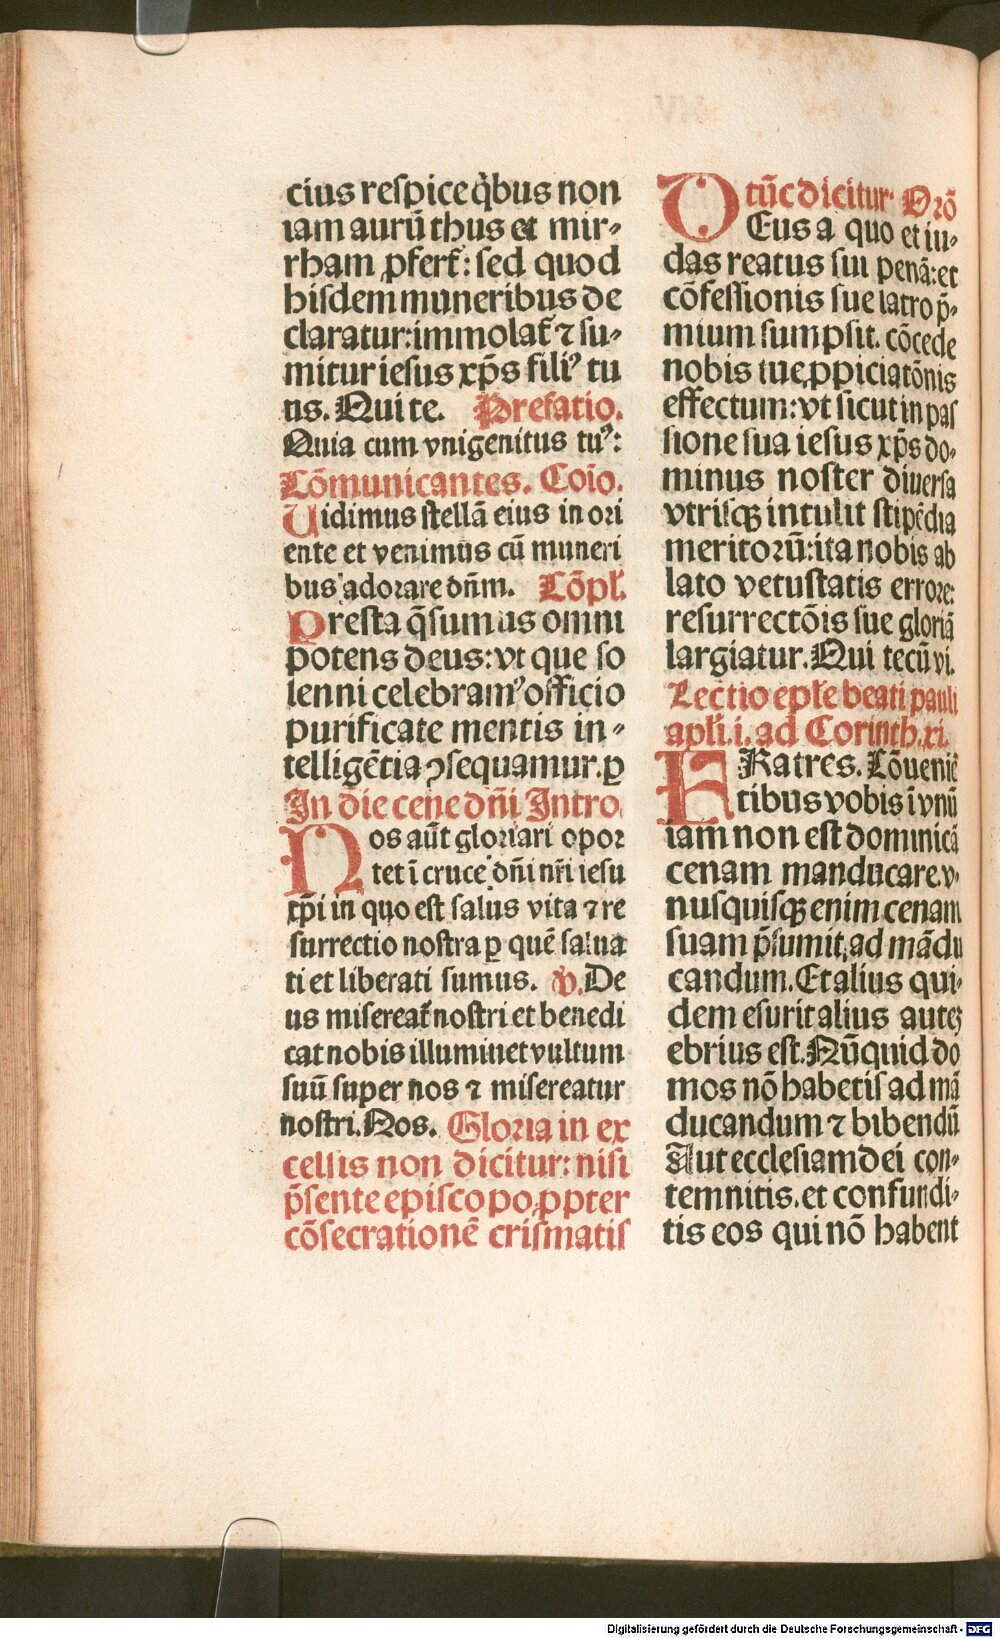 cius respice q̄bus non
iam aurū thus et mir⸗
rham ꝓfert᷑: sed quod
hisdem muneribus de
claratur: immolat᷑ ⁊ su⸗
mitur iesus xp̄s filiꝰ tu
us. Qui te. Prefatio.
Quia cum vnigenitus tuꝰ:
Cōmunicantes. Coīo.
Uidimus stellā eius in ori
ente et venimus cū muneri
bus adorare dn̄m. Cōpl̄.
Presta q̄sumus omni
potens deus: vt que so
lenni celebramꝰ officio
purificate mentis in⸗
telligētia ꝯsequamur. ꝑ
In die cene dn̄i Intro
Nos aūt gloriari opor
tet ī cruce dn̄i nr̄i iesu
xp̄i in quo est salus vita ⁊ re
surrectio nostra ꝑ quē salua
ti et liberati sumus. v̄. De
us misereat᷑ nostri et benedi
cat nobis illuminet vultum
suū super nos ⁊ misereatur
nostri. Nos. Gloria in ex
celsis non dicitur: nisi
p̄sente episcopo, ꝓpter
cōsecrationē crismatis
tūc dicitur. Orō
DEus a quo et iu⸗
das reatus sui penā: et
cōfessionis sue latro p̄⸗
mium sumpsit. cōcede
nobis tue ꝓpiciatōnis
effectum: vt sicut in pas
sione sua iesus xp̄s do⸗
minus noster diuersa
vtrisqꝫ intulit stipēdia
meritorū: ita nobis ab
lato vetustatis errore:
resurrectōis sue gloriā
largiatur. Qui tecū vi.
Lectio ep̄le beati pauli
apl̄i. i. ad Corinth. xi.
FRatres. Cōueniē
tibus vobis ī vnū
iam non est dominicā
cenam manducare. v⸗
nusquisqꝫ enim cenam
suam p̄sumit, ad mādu
candum. Et alius qui⸗
dem esurit alius auteꝫ
ebrius est. Nūquid do
mos nō habetis ad mā
ducandum ⁊ bibendū
Aut ecclesiam dei con⸗
temnitis. et confundi⸗
tis eos qui nō habent
Digitalisierung gefördert durch die Deutsche Forschungsgemeinschaft - DFG